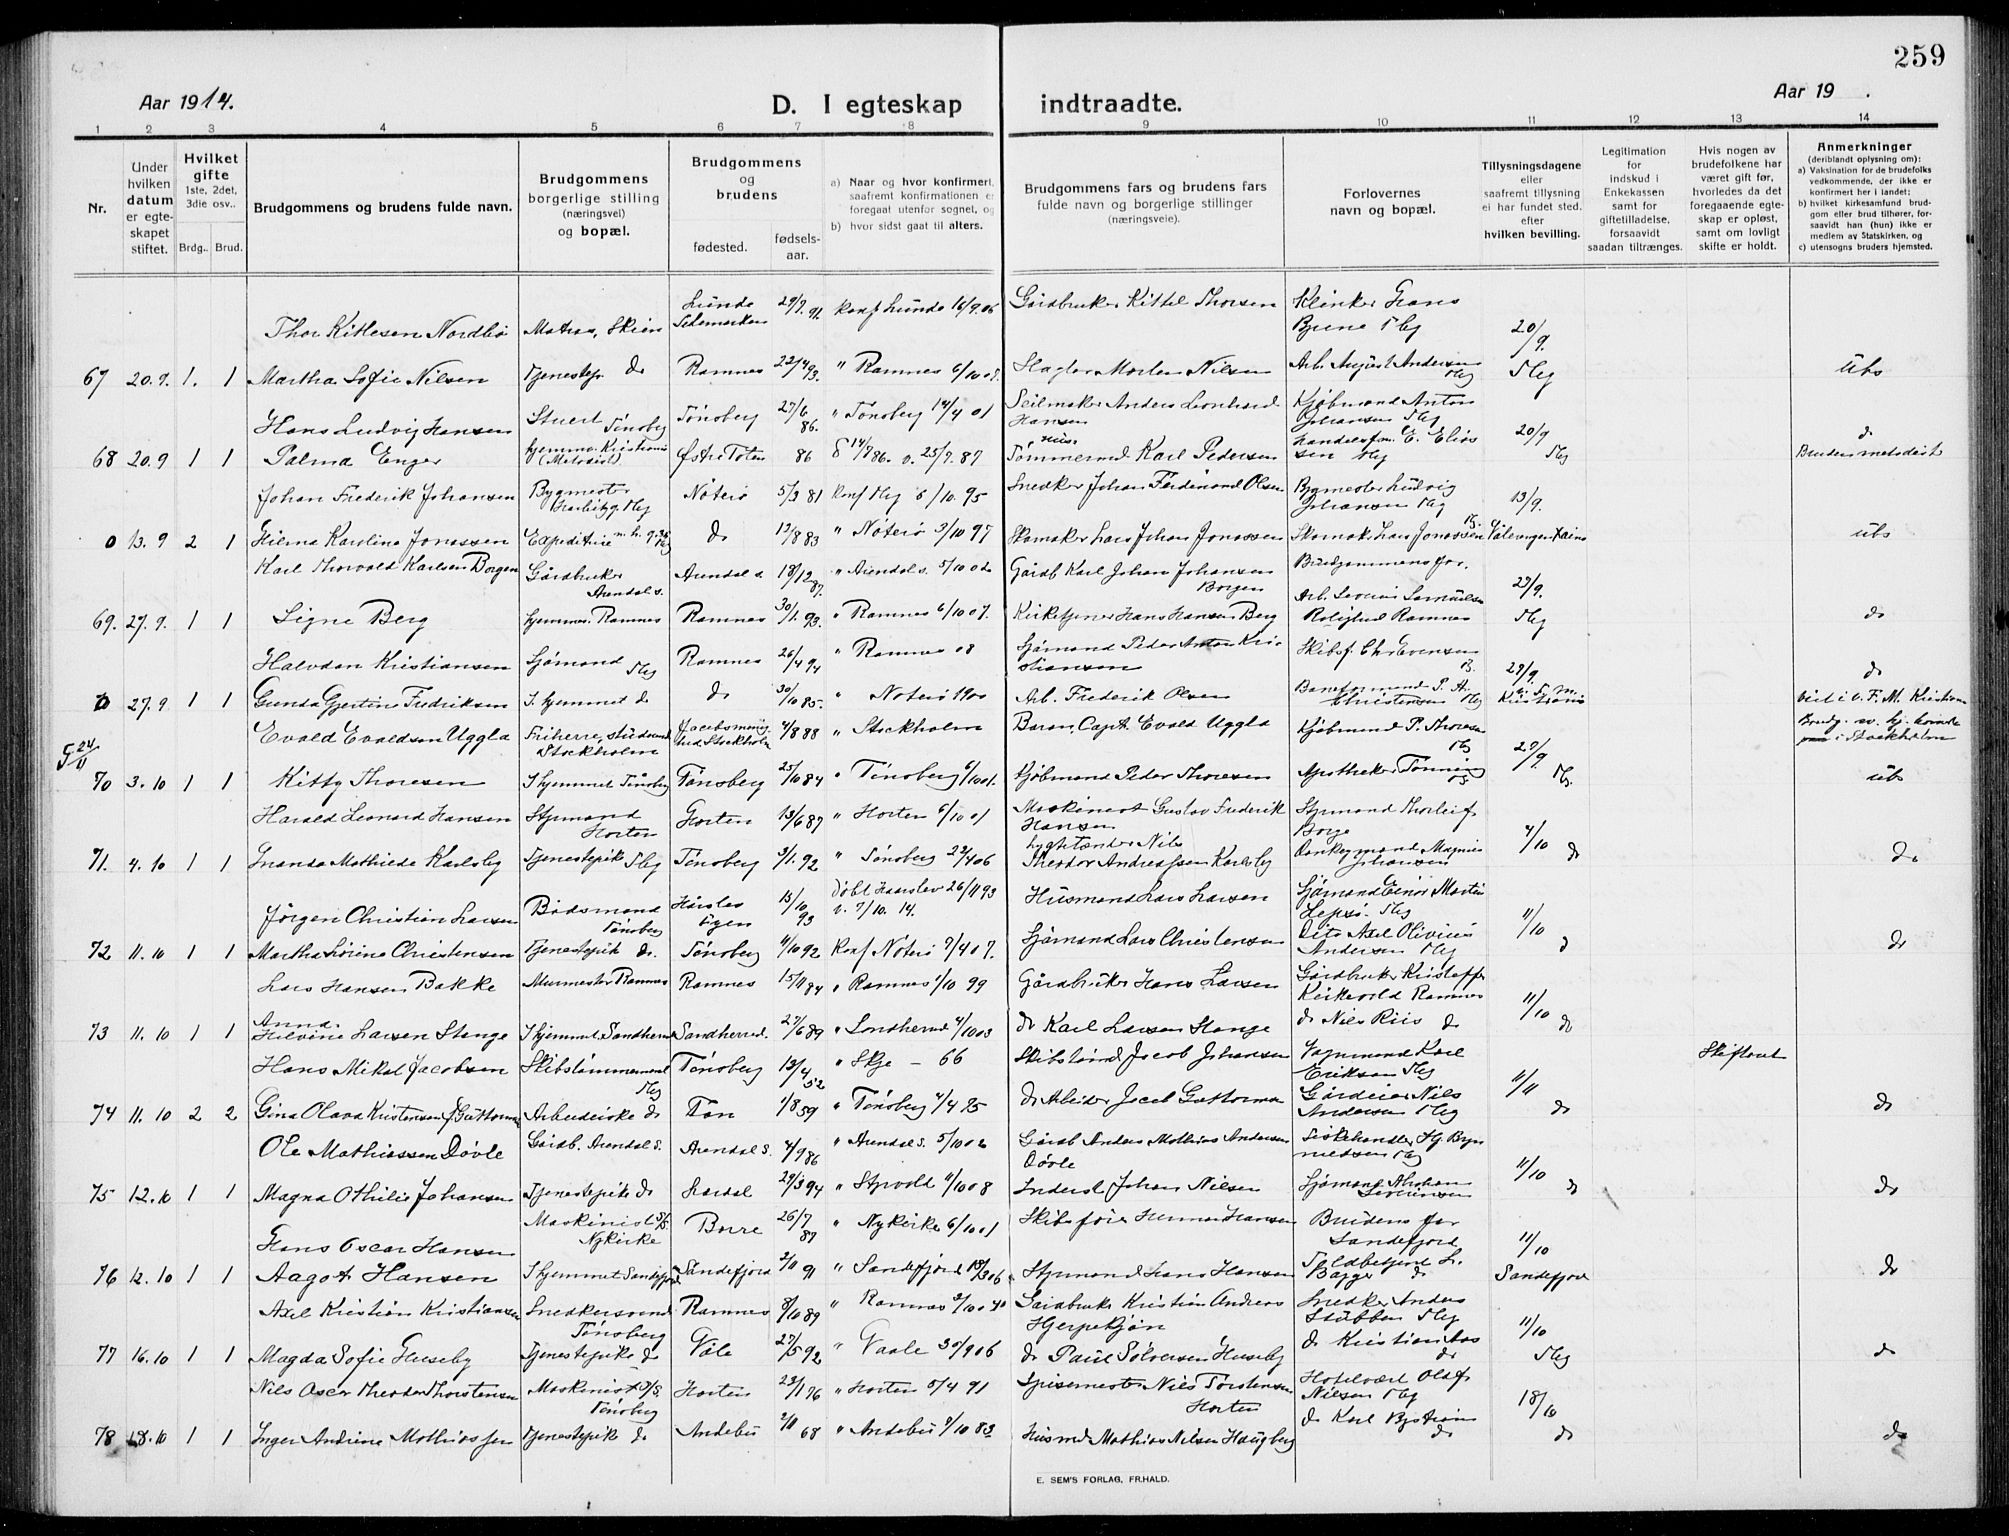 259
Aar 1914.
D. I egteskap indtraadte.
Aar 19 .
1 2 3 4 5 6 7 8 9 10 11 12 13 14
Nr.
Under hvilken datum er egteskapet stiftet.
Hvilket gifte 1ste, 2det, 3die osv..
Brdg.. Brud.
Brudgommens og brudens fulde navn.
Brudgommens borgerlige stilling (næringsvei) og bopæl.
Brudgommens og brudens
fødested. fødselsaar.
a) Naar og hvor konfirmert, saafremt konfirmationen er foregaat utenfor sognet, og
b) hvor sidst gaat til alters.
Brudgommens fars og brudens fars fulde navn og borgerlige stillinger (næringsveie).
Forlovernes navn og bopæl.
Tillysningsdagene eller saafremt tillysning ei har fundet sted. efter hvilken bevilling.
Legitimation for indskud i Enkekassen samt for giftetilladelse, forsaavidt saadan tiltrænges.
Hvis nogen av brudefolkene har været gift før, hvorledes da det foregaaende egteskap er opløst, samt om lovligt skifte er holdt.
Anmerkninger (deriblandt oplysning om): a) Vaksination for de brudefolks vedkommende, der ikke er konfirmert her i landet; b) hvilket kirkesamfund brudgom eller brud tilhører, forsaavidt han (hun) ikke er medlem av Statskirken, og c) utensogns bruders hjemsted.
Thor Kittesen Nordbö Matros, Skien Lunde Telemarken 29/7.92 Konf Lunde 16/9.06 Gårdbruker Kittel Thorsen Klinker Hans Bruno Tbg 20/9.
67 20.9. 1. 1 Martha Sofie Nilsen Tjenestep. do Ramnes 22/4 93. " Ramnes 6/10 07. Slagter Morten Nilsen Arb. August Andersen Tbg Tbg Ubs
Hans Ludvig Hansen Stuert Tönsberg Tönsberg 27/6 86. " Tönsberg 14/4 01 Seilmaker Anders Leonhard Hansen Kjöbmand Anton Johansen Tbg 20/9
68 20.9 1 1 Palma Enger hjemme. Kristiania (Metodist) Østre Toten 86 Tömmermd Karl Pedersen Handelsfm. E. Eliassen Tbg Tbg Bruden metodist
Johan Frederik Johansen Bygmester Tbg Nöterö 5/3 81 Konf Tbg 6/10.95 Snedker Johan Ferdinand Olsen Bygmester Ludvig Johansen Tbg 13/9.
0 13.9 2 1 Hilma Karoline Jonassen Expeditrice do 12/8 83 " Nöterö 3/10 97 Skomaker Lars Johan Jonassen Skomak. Lars Jonassen Vålerengen Kania Ubs
Karl Thorvald Karlsen Borgen Gårdbruker Arendal s. Arendal s. 18/12 87. " Arendal s. 5/10 02 Gårdb Karl Johan Johansen Borgen Brudgommens far. 27/9.
69. 27.9. 1 1 Signe Berg hjemme. Ramnes Ramnes 30/1. 93. " Ramnes 6/10 07. Kirketjener Hans Hansen Berg Arb. Severin Samuelsen Rolighed Ramnes Tbg do
Halvdan Kristiansen Sjömand Tbg Ramnes 26/4 94 " Ramnes 08 Sjömand Peder Anton Kristiansen Skibsf. Chr Evensen 27/9. do
0 27.9 1 1 Gunda Gjertine Fredriksen I hjemmet do do 30/10 85. " Nöterö Arb. Frederik Olsen P. A. Christensen Tbg Kristiania Viet i v. F. M. Kristiania
Evald Evaldsen Uggla Friherre, Stockholm Stockholm 4/8 88 " Stockholm Baron, Capt. Evald Uggla Kjöbmand P. Thoresen 27/9. i Stockholm
70 3.10 1 1 Kitty Thoresen I hjemmet Tönsberg Tönsberg 25/10 84 " Tönsberg 6/10 01. Kjöbmand Peder Thoresen Apotheker Tönning Tbg. Ubs
Harald Leonard Hansen Styrmand Horten Horten 13/6 87 " Horten 6/10 01 Maskinist Gustav Frederik Hansen Styrmand Thorleif Borge 4/10
71. 4.10 1 1 Inanda Mathilde Karlsby Tjenestepik Tbg Tönsberg 3/1. 92 " Tönsberg 22/4 06 Lygtetænder Nils Theodor Andreassen Karlsby Donkeymand Magnus Johansen do do
Jörgen Christian Larsen Bådsmand Tönsberg Hårslev Fyen 13/10 93 Döbt Haarslev 26/11 93 v. 7/10.14. Husmand Lars Larsen Sjömand Einar Martin Lepsö. Tbg 11/10
72 11.10 1 1 Martha Lorine Christensen Tjenestepik do. Tönsberg 4/10 92 Konf Nöterö 7/4 07. Sjömand Lars Christensen Dito Axel Olivius Andersen Tbg do do
Lars Hansen Bakke Murmester Ramnes Ramnes 15/11 84 " Ramnes 1/10 99 Gårdbruker Hans Larsen Gårdbruker Kristoffer Kirkevold Ramnes 11/10
73 11.10 1 1 Anna Helvine Larsen Stange I hjemmet Sandherred Sandherred. 27/6 89 " Sandherred 4/10 03 do Karl Larsen Stange do Nils Riis do do
Hans Mikal Jacobsen Skibstömmermand Tbg Tönsberg 13/4 52 " Skje – 66 Skibstömd. Jacob Johansen Vognmand Karl Eriksen Tbg 11/11 Skifteret
74 11.10 2 2 Gina Olava Kristensen f Guttormsen Arbeiderske do Tön 1/8 59 " Tönsberg 4/4 75 do Arbeider Jacob Guttormsen Gårdeier Nils Andersen Tbg do do
Ole Mathiassen Dövle Gårdb. Arendal s. Arendal s. 4/9 86 " Arendal s. 5/10 02 Gårdb Anders Mathias Andersen Dövle Fiskehandler Brynildsen Tbg 11/10
75 12.10 1 1 Magna Othilie Johansen Tjenestepik do Lardal 29/3 94 " Styrvold 4/10 08 Inderst Johan Nilsen Sjömand Abraham Severinsen do do
Hans Oscar Hansen Maskinist D/S. Nykirke Borre 26/7 87 " Nykirke 6/10 01 Skibsförer Herman Hansen Brudens far Sandefjord 11/10
76 12.10 1 1 Aagot Hansen I hjemmet Sandefjord Sandefjord 2/11 91 " Sandefjord 18/3 06 Styrmand Hans Hansen Toldbetjent L. Bagger do Sandefjord do
Axel Kristian Kristiansen Snedkersvend Tönsberg Ramnes 8/10 89 " Ramnes Gårdbruker Kristian Andreas Hjerpekjön Snedker Anders Stubben Tbg 11/10
77 16.10 1 1 Magda Sofie Huseby Tjenestepike do Våle 27/5 92 " Vaale 30/9 06 do Paul Sölversen Huseby do Kristian Aas do Tbg do
Nils Oscar Theodor Thorstensen Maskinist D/S. Tönsberg Horten 23/1 76 " Horten 5/4 91 Spisemester Nils Torstensen Horten Hotelvært Olaf Nilsen Tbg 18/10
78 18.10 1 1 Inger Andrine Mathiassen Tjenestepik do Andebu 2/11 68 " Andebu 7/10 83 Husmd Mathias Nilsen Haugberg do Karl Byström do do do
E. SEM'S FORLAG, FR.HALD.